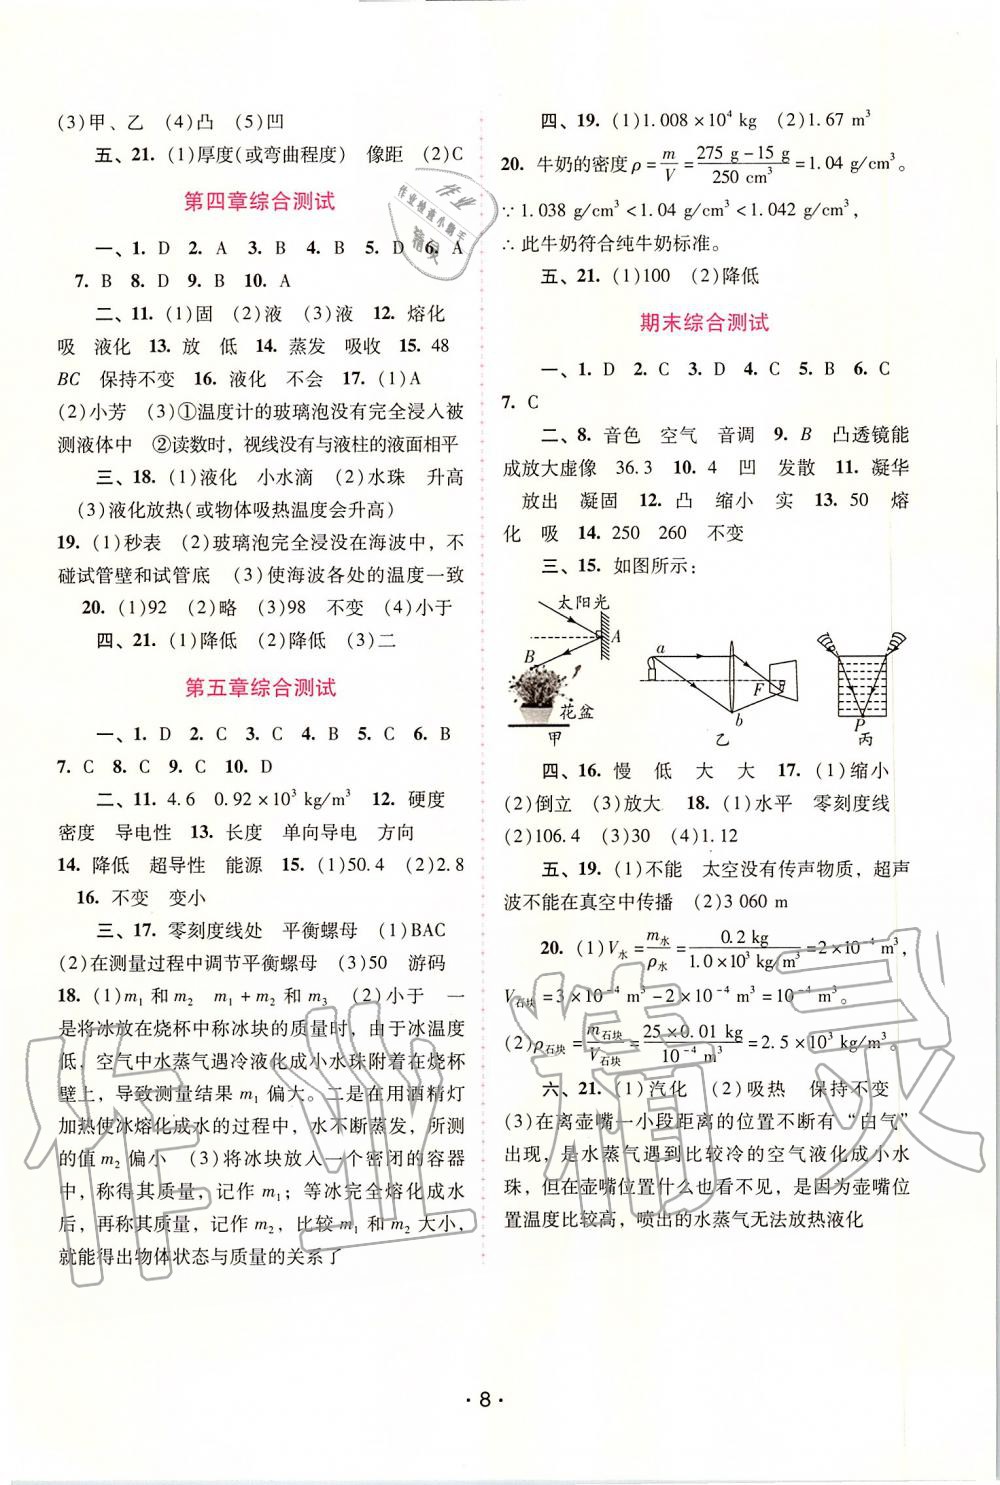 (3)甲、乙 (4)凸 (5)凹
五、21. (1)厚度(或弯曲程度) 像距 (2)C
第四章综合测试
一、1. D 2. A 3. B 4. B 5. D 6. A
7. B 8. D 9. B 10. A
二、11. (1)固 (2)液 (3)液 12. 熔化
吸 液化 13. 放 低 14. 蒸发 吸收 15. 48
BC 保持不变 16. 液化 不会 17. (1)A
(2)小芳 (3)①温度计的玻璃泡没有完全浸入被
测液体中 ②读数时，视线没有与液柱的液面相平
三、18. (1)液化 小水滴 (2)水珠 升高
(3)液化放热(或物体吸热温度会升高)
19. (1)秒表 (2)玻璃泡完全浸没在海波中，不
碰试管壁和试管底 (3)使海波各处的温度一致
20. (1)92 (2)略 (3)98 不变 (4)小于
四、21. (1)降低 (2)降低 (3)二
第五章综合测试
一、1. D 2. C 3. C 4. B 5. C 6. B
7. C 8. C 9. C 10. D
二、11. 4.6 0.92×10³ kg/m³ 12. 硬度
密度 导电性 13. 长度 单向导电 方向
14. 降低 超导性 能源 15. (1)50.4 (2)2.8
16. 不变 变小
三、17. 零刻度线处 平衡螺母 (1)BAC
(2)在测量过程中调节平衡螺母 (3)50 游码
18. (1)m₁ 和 m₂ m₁+m₂ 和 m₃ (2)小于 一
是将冰放在烧杯中称冰块的质量时，由于冰温度
低，空气中水蒸气遇冷液化成小水珠附着在烧杯
壁上，导致测量结果 m₁ 偏大。二是在用酒精灯
加热使冰熔化成水的过程中，水不断蒸发，所测
的值 m₂ 偏小 (3)将冰块放入一个密闭的容器
中，称得其质量，记作 m₁；等冰完全熔化成水
后，再称其质量，记作 m₂，比较 m₁ 和 m₂ 大小，
就能得出物体状态与质量的关系了
四、19. (1)1.008×10⁴ kg (2)1.67 m³
20. 牛奶的密度 ρ=m/V=(275 g-15 g)/(250 cm³)=1.04 g/cm³。
∵1.038 g/cm³<1.04 g/cm³<1.042 g/cm³，
∴此牛奶符合纯牛奶标准。
五、21. (1)100 (2)降低
期末综合测试
一、1. D 2. C 3. D 4. C 5. B 6. C
7. C
二、8. 音色 空气 音调 9. B 凸透镜能
成放大虚像 36.3 10. 4 凹 发散 11. 凝华
放出 凝固 12. 凸 缩小 实 13. 50 熔
化 吸 14. 250 260 不变
三、15. 如图所示：
太阳光
A
B
花盆
甲
a
F
b
乙
P
丙
四、16. 慢 低 大 大 17. (1)缩小
(2)倒立 (3)放大 18. (1)水平 零刻度线
(2)106.4 (3)30 (4)1.12
五、19. (1)不能 太空没有传声物质，超声
波不能在真空中传播 (2)3 060 m
20. (1)V水=m水/ρ水=0.2 kg/(1.0×10³ kg/m³)=2×10⁻⁴ m³，
V石块=3×10⁻⁴ m³-2×10⁻⁴ m³=10⁻⁴ m³。
(2)ρ石块=m石块/V石块=(25×0.01 kg)/(10⁻⁴ m³)=2.5×10³ kg/m³。
六、21. (1)汽化 (2)吸热 保持不变
(3)在离壶嘴一小段距离的位置不断有“白气”
出现，是水蒸气遇到比较冷的空气液化成小水
珠，但在壶嘴位置什么也看不见，是因为壶嘴位
置温度比较高，喷出的水蒸气无法放热液化
作业
作业检查小助手
精灵
作业精灵
· 8 ·